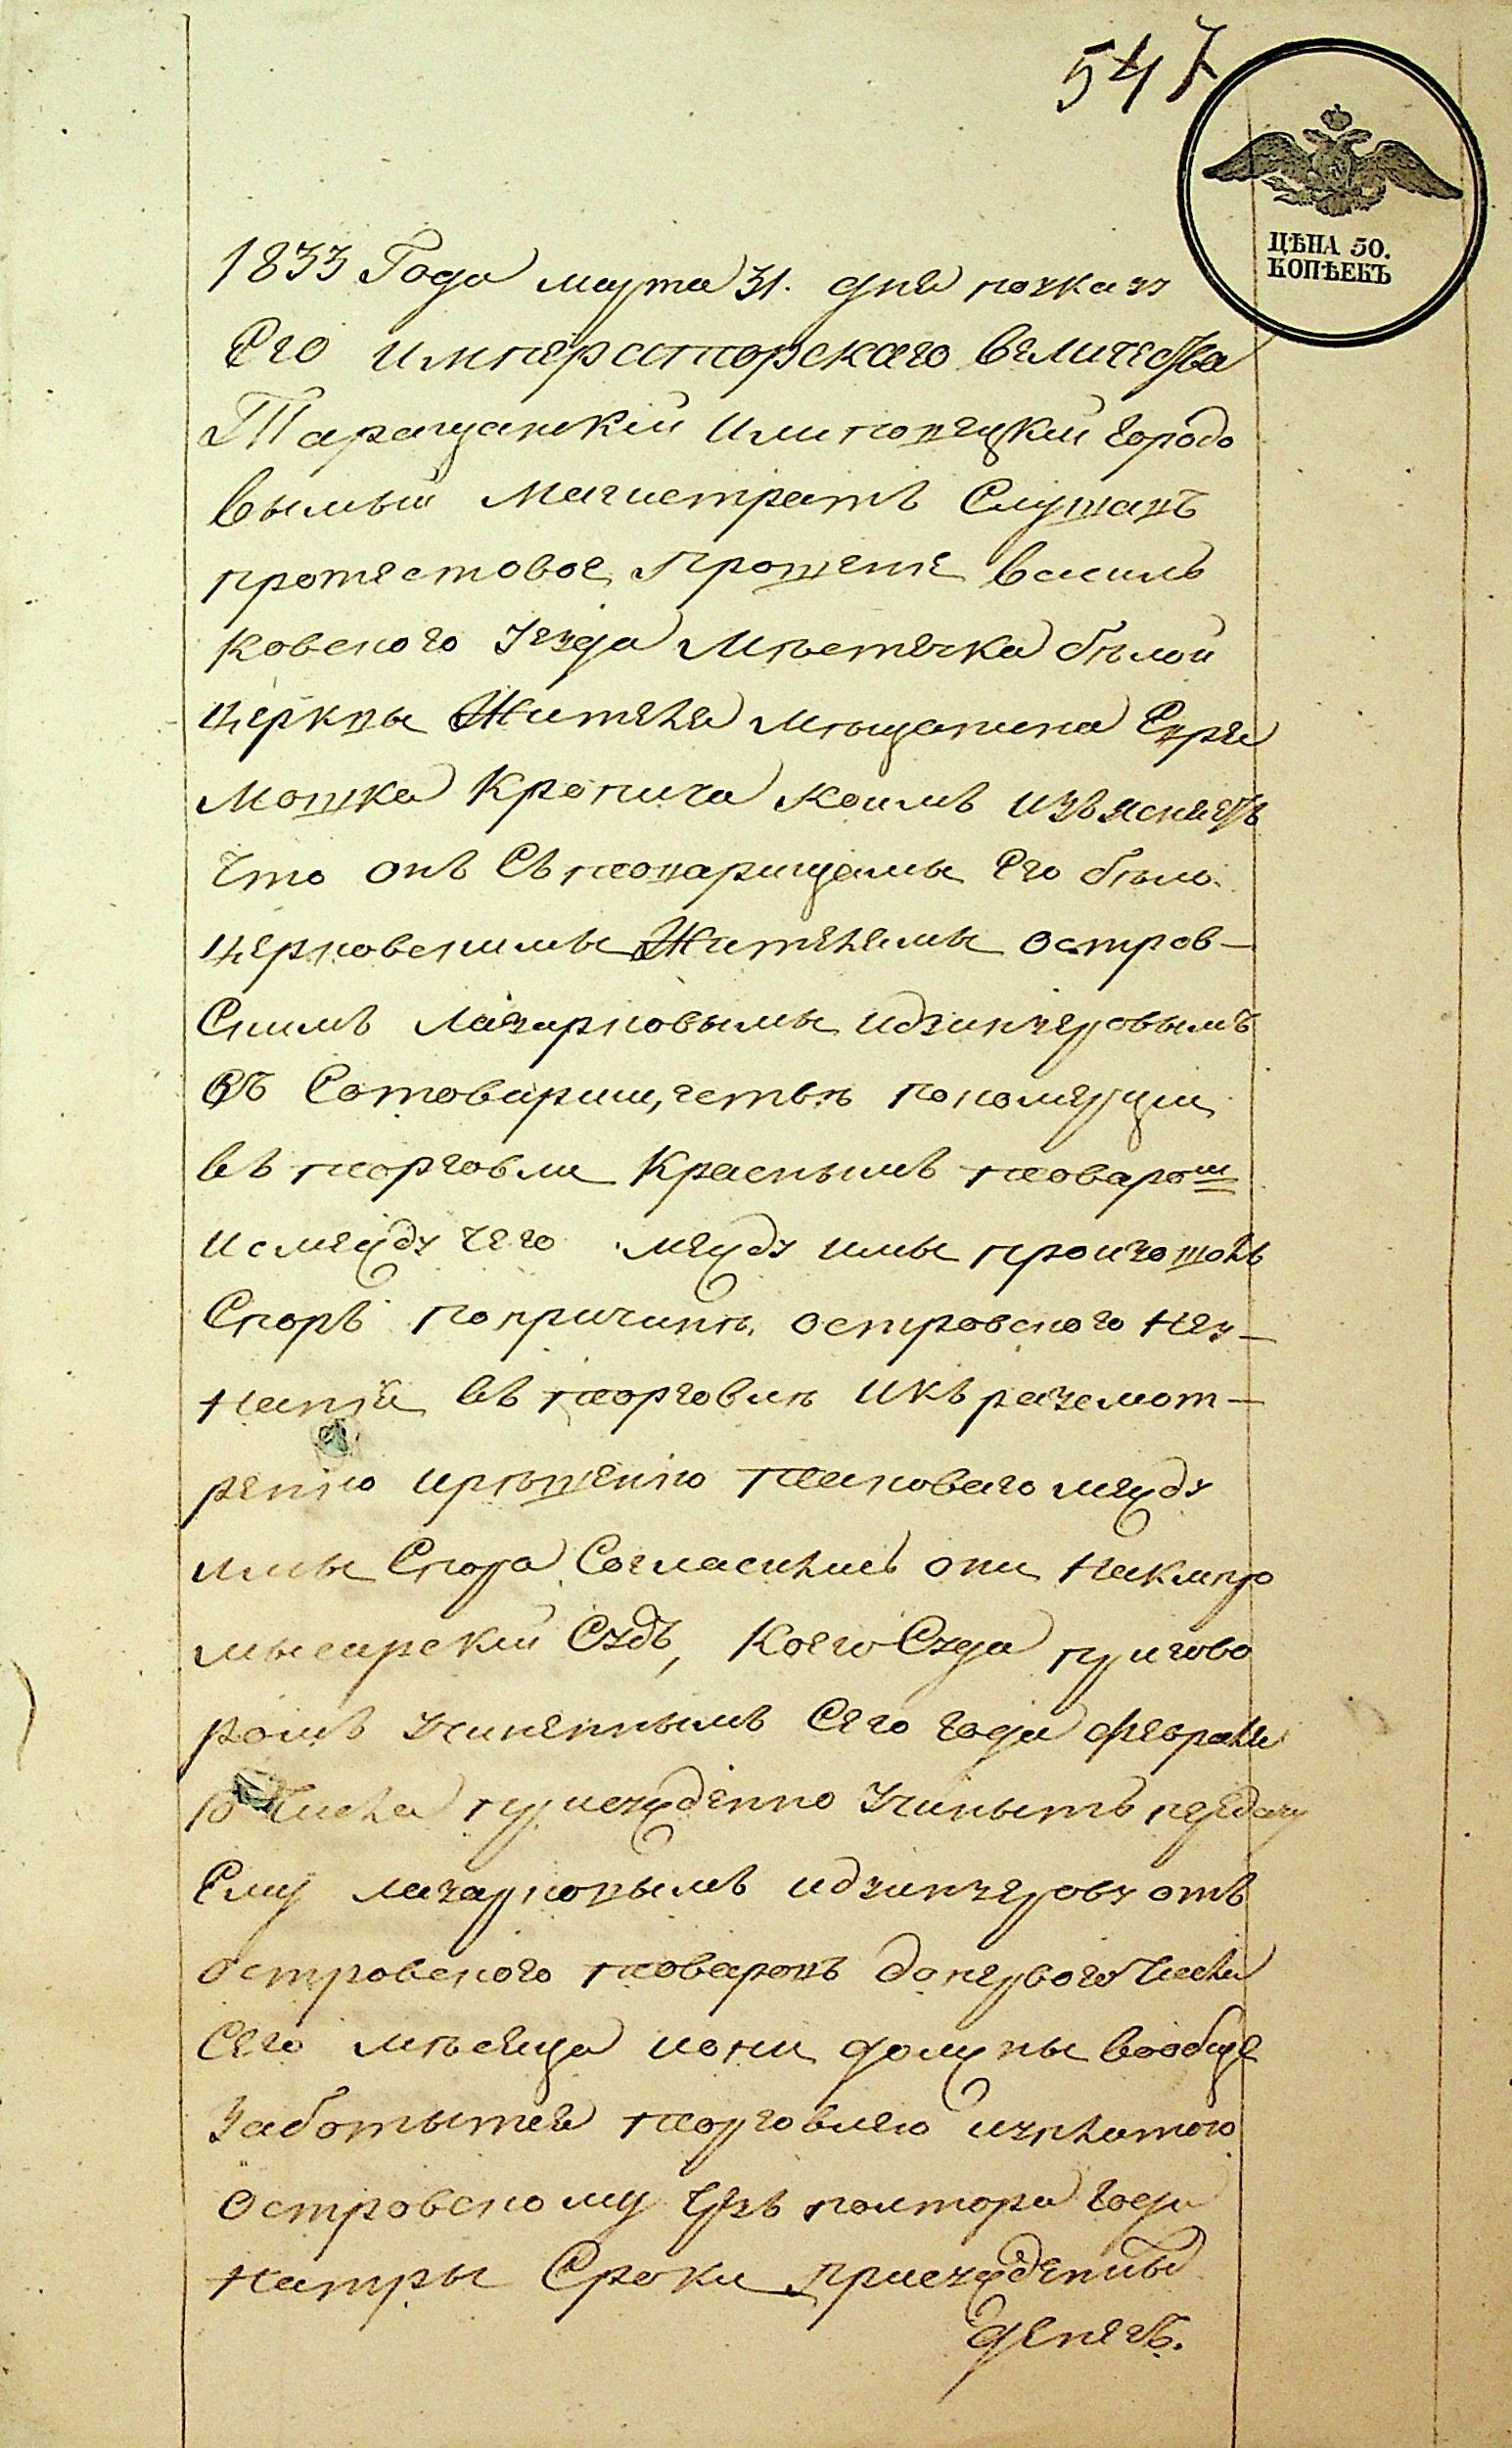 547
ЦѢНА 50.
КОПѢЕКЪ
1833 Года марта 31. дня поуказу
Его императорскаго величества
Таращанскій Имиповецкий городо
вымый Магистратъ Слушавъ
протестовое прошеніе василь
ковского уезда Мѣстечка бѣлой
церквы Жителя мѣщанина Еврея
Мошка Кропича коимъ изъясняетъ
что онъ Съ товарищамы его бѣло
церковскимы Жителямы остров-
Скимъ лазарковымы идзинзеровымъ
въ Сотоварищчетвѣ покомерции
въ торговли Краснымъ товаромъ
исмежду чего между имы произошолъ
Споръ попричинѣ островского нез-
нанія въ торговлѣ икъ разсмот-
рению ирѣшению таковаго между
имы Спора Согласились они накомпро
мысарский Судъ, коего Суда пригово
ромъ учиненнымъ Сего года февраля
10 Числа присужденно учинытъ передачу
Ему лазарковымъ идзинзерову отъ
островского товаровъ до первого числа
Сего мѣсяца иони должны вообще
Заботытся торговлею иуплатою
островскому чрезъ полтора года
натры Сроки присужденныхъ
денегъ.